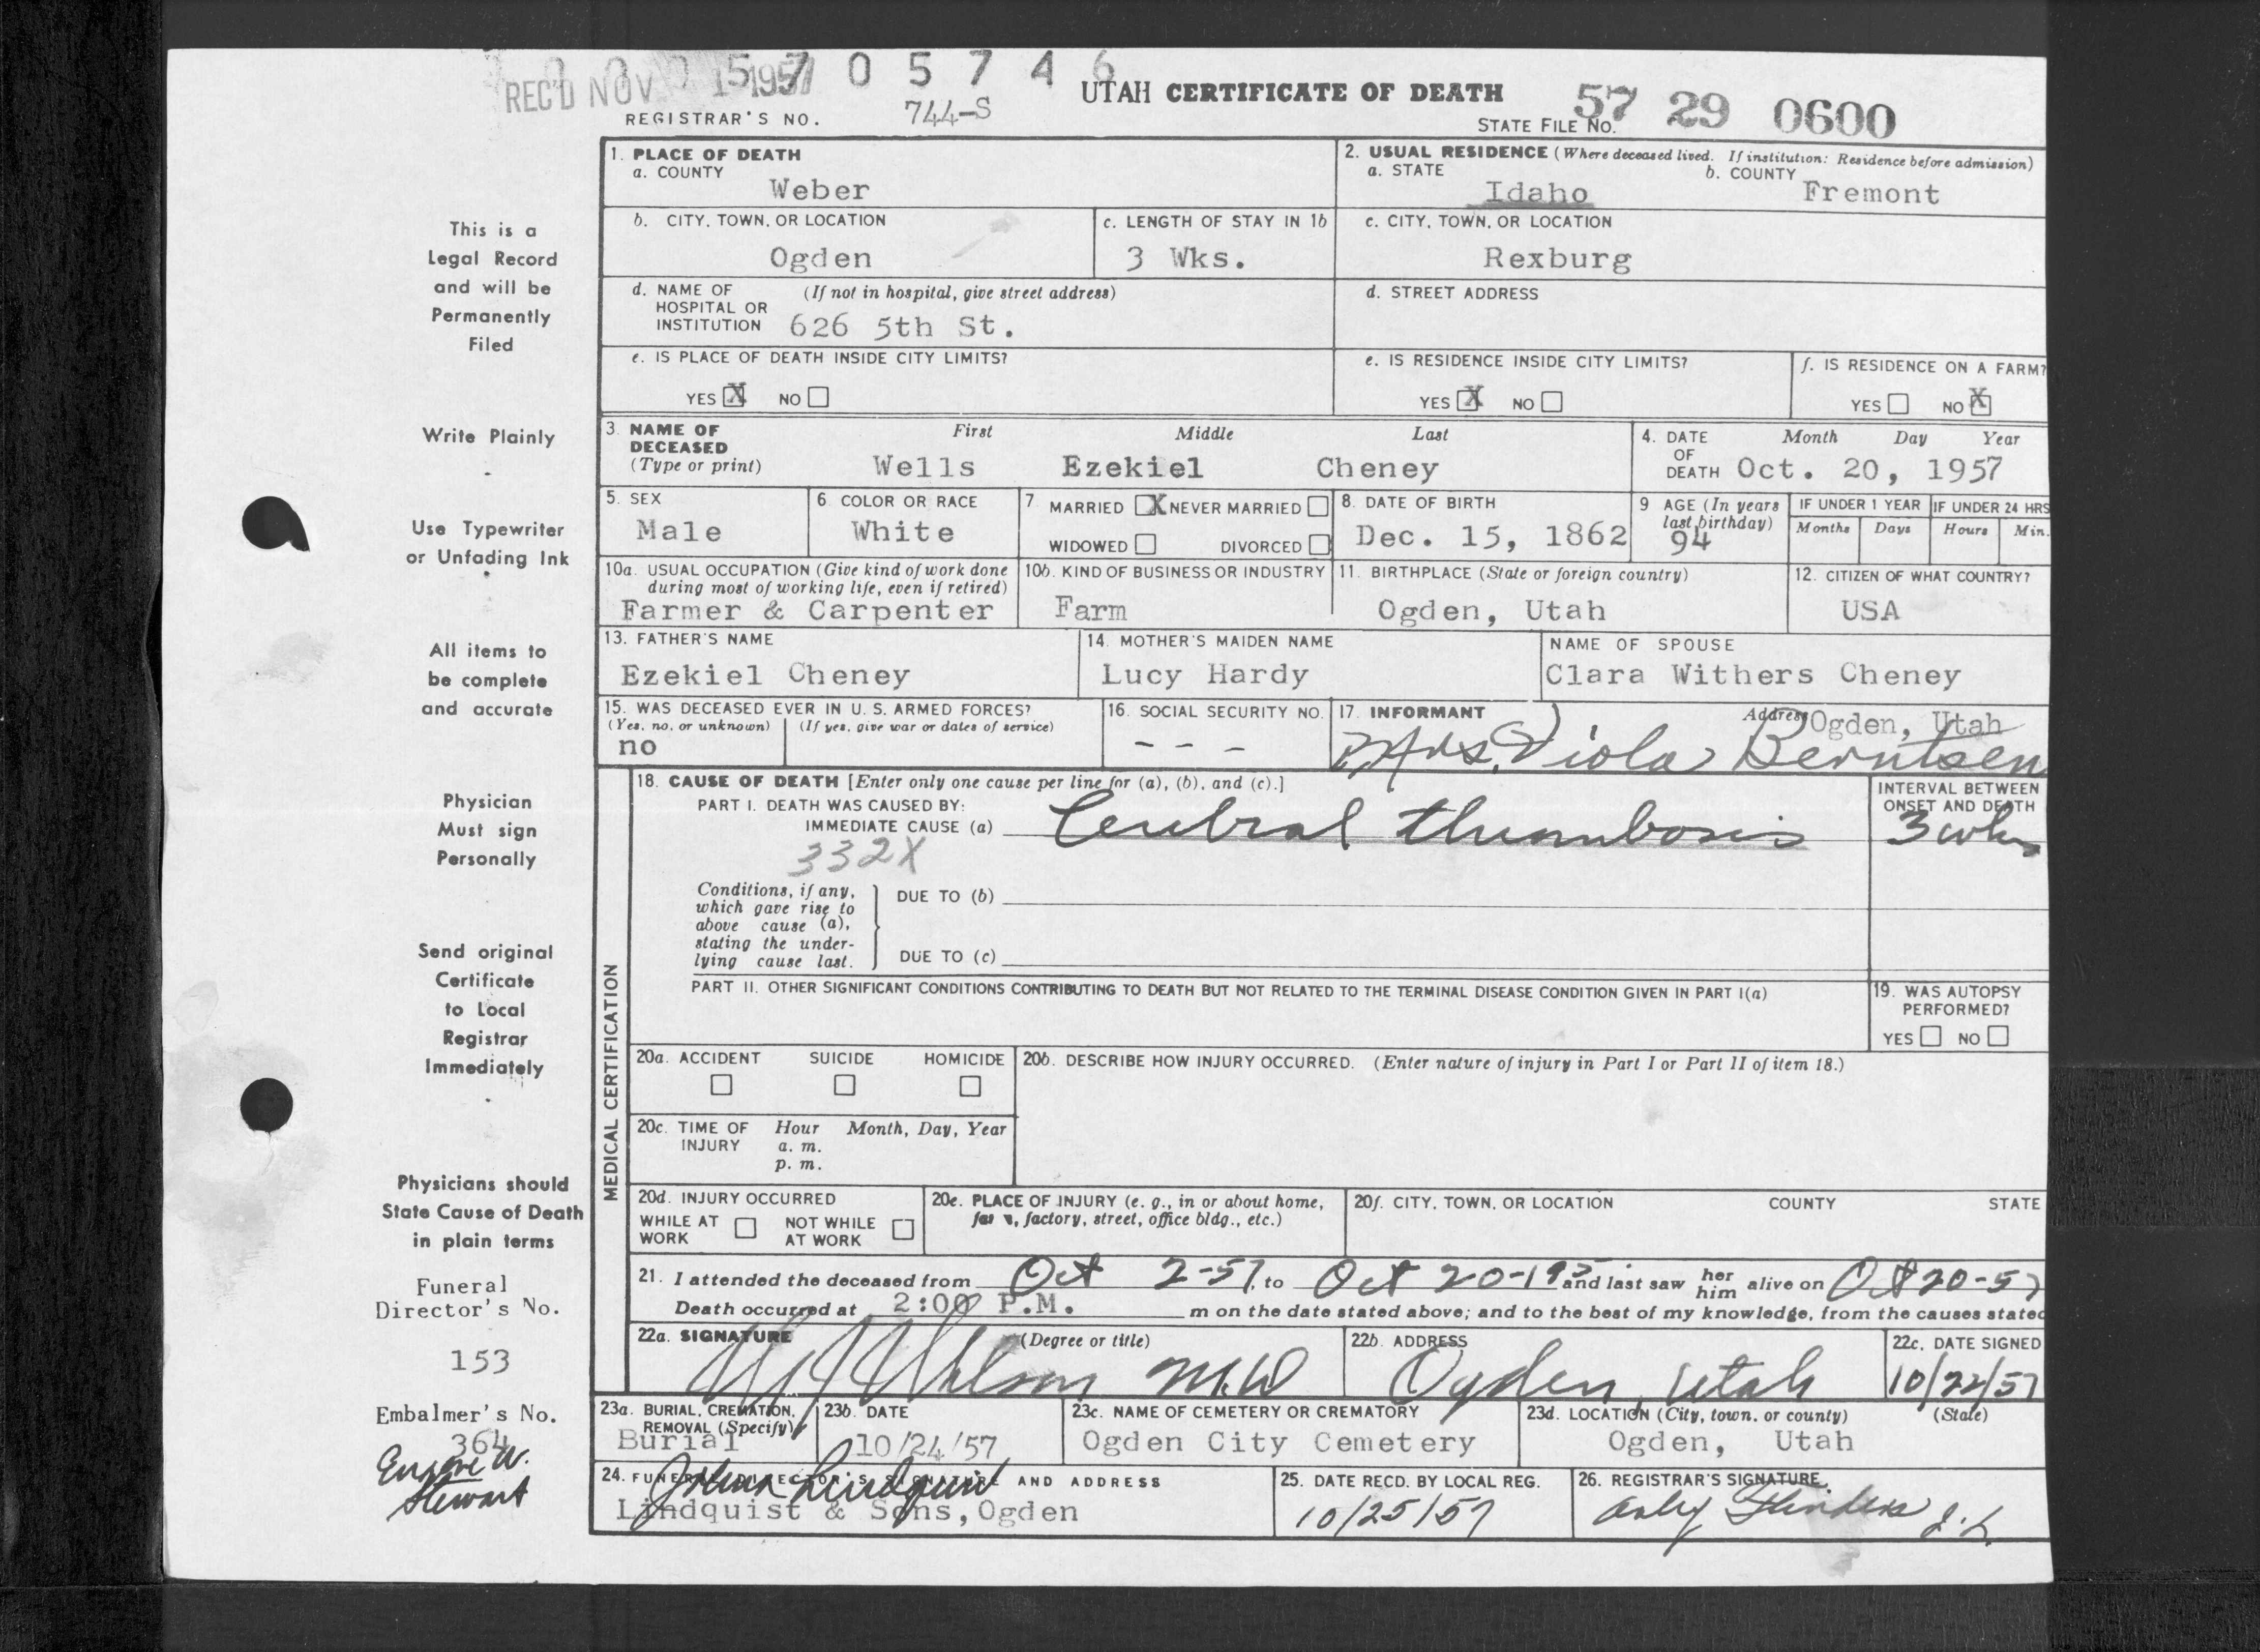 REC'D NOV 15 1957 0 5 7 4 6
UTAH CERTIFICATE OF DEATH
REGISTRAR'S NO. 744-S
STATE FILE NO. 57 29 0600
This is a
Legal Record
and will be
Permanently
Filed
Write Plainly
Use Typewriter
or Unfading Ink
All items to
be complete
and accurate
Physician
Must sign
Personally
Send original
Certificate
to Local
Registrar
Immediately
Physicians should
State Cause of Death
in plain terms
Funeral
Director's No.
153
Embalmer's No.
364
Eugene W.
Stewart
1. PLACE OF DEATH
a. COUNTY
Weber
2. USUAL RESIDENCE (Where deceased lived. If institution: Residence before admission)
a. STATE b. COUNTY
Idaho Fremont
b. CITY, TOWN, OR LOCATION
Ogden
c. LENGTH OF STAY IN 1b
3 Wks.
c. CITY, TOWN, OR LOCATION
Rexburg
d. NAME OF (If not in hospital, give street address)
HOSPITAL OR
INSTITUTION 626 5th St.
d. STREET ADDRESS
e. IS PLACE OF DEATH INSIDE CITY LIMITS?
YES X NO
e. IS RESIDENCE INSIDE CITY LIMITS?
YES X NO
f. IS RESIDENCE ON A FARM?
YES NO X
3. NAME OF First Middle Last
DECEASED
(Type or print) Wells Ezekiel Cheney
4. DATE Month Day Year
OF
DEATH Oct. 20, 1957
5. SEX
Male
6. COLOR OR RACE
White
7 MARRIED X NEVER MARRIED
WIDOWED DIVORCED
8. DATE OF BIRTH
Dec. 15, 1862
9 AGE (In years
last birthday)
94
IF UNDER 1 YEAR
Months Days
IF UNDER 24 HRS
Hours Min.
10a. USUAL OCCUPATION (Give kind of work done
during most of working life, even if retired)
Farmer & Carpenter
10b. KIND OF BUSINESS OR INDUSTRY
Farm
11. BIRTHPLACE (State or foreign country)
Ogden, Utah
12. CITIZEN OF WHAT COUNTRY?
USA
13. FATHER'S NAME
Ezekiel Cheney
14. MOTHER'S MAIDEN NAME
Lucy Hardy
NAME OF SPOUSE
Clara Withers Cheney
15. WAS DECEASED EVER IN U. S. ARMED FORCES?
(Yes, no, or unknown) (If yes, give war or dates of service)
no
16. SOCIAL SECURITY NO.
- - -
17. INFORMANT Address Ogden, Utah
Mrs. Viola Berntsen
MEDICAL CERTIFICATION
18. CAUSE OF DEATH [Enter only one cause per line for (a), (b), and (c).]
PART I. DEATH WAS CAUSED BY:
IMMEDIATE CAUSE (a) Cerebral thrombosis
332X
INTERVAL BETWEEN
ONSET AND DEATH
3 wks
Conditions, if any,
which gave rise to
above cause (a),
stating the under-
lying cause last.
DUE TO (b)
DUE TO (c)
PART II. OTHER SIGNIFICANT CONDITIONS CONTRIBUTING TO DEATH BUT NOT RELATED TO THE TERMINAL DISEASE CONDITION GIVEN IN PART I(a)
19. WAS AUTOPSY
PERFORMED?
YES NO
20a. ACCIDENT SUICIDE HOMICIDE
20b. DESCRIBE HOW INJURY OCCURRED. (Enter nature of injury in Part I or Part II of item 18.)
20c. TIME OF Hour Month, Day, Year
INJURY a. m.
p. m.
20d. INJURY OCCURRED
WHILE AT NOT WHILE
WORK AT WORK
20e. PLACE OF INJURY (e. g., in or about home,
farm, factory, street, office bldg., etc.)
20f. CITY, TOWN, OR LOCATION COUNTY STATE
21. I attended the deceased from Oct 2-57, to Oct 20-195 and last saw her him alive on Oct 20-57
Death occurred at 2:00 P.M. m on the date stated above; and to the best of my knowledge, from the causes stated
22a. SIGNATURE (Degree or title)
Wilson M.D
22b. ADDRESS
Ogden, Utah
22c. DATE SIGNED
10/22/57
23a. BURIAL, CREMATION,
REMOVAL (Specify)
Burial
23b. DATE
10/24/57
23c. NAME OF CEMETERY OR CREMATORY
Ogden City Cemetery
23d. LOCATION (City, town, or county) (State)
Ogden, Utah
24. FUNERAL DIRECTOR'S SIGNATURE AND ADDRESS
Lindquist
Lindquist & Sons, Ogden
25. DATE RECD. BY LOCAL REG.
10/25/57
26. REGISTRAR'S SIGNATURE